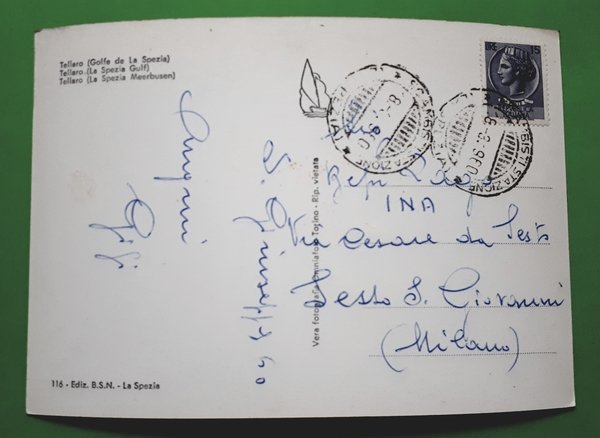 Tellaro (Golfe de La Spezia)
Tellaro (La Spezia Gulf)
Tellaro (La Spezia Meerbusen)
Auguri
Gigi
S. Giuseppe 60
116 - Ediz. B.S.N. - La Spezia
Vera fotografia Omniafoto Torino - Rip. vietata
LIRE 15
INA
Via Cesare da Sesto
Sesto S. Giovanni
(Milano)